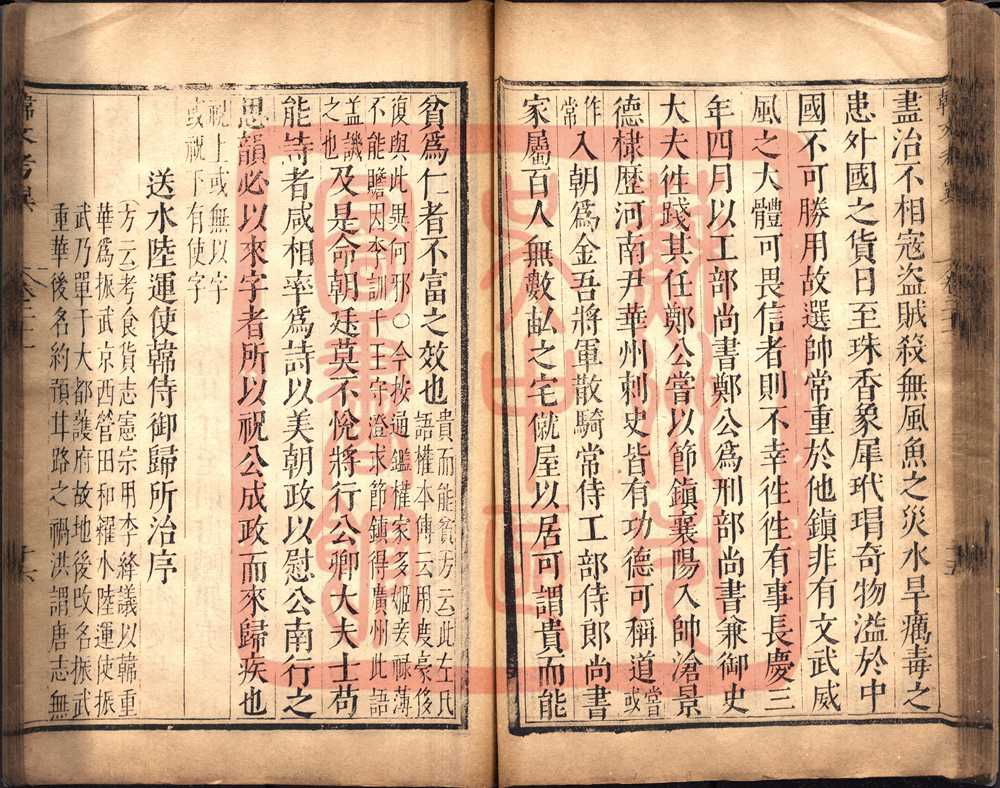 盡治不相寇盜賊殺無風魚之災水旱癘毒之
患外國之貨日至珠香象犀玳瑁奇物溢於中
國不可勝用故選帥常重於他鎮非有文武威
風之大體可畏信者則不幸徃徃有事長慶三
年四月以工部尚書鄭公爲刑部尚書兼御史
大夫徃踐其任鄭公嘗以節鎮襄陽入帥滄景
德棣歷河南尹華州刺史皆有功德可稱道嘗或
作常入朝爲金吾將軍散騎常侍工部侍郎尚書
家屬百人無數畝之宅僦屋以居可謂貴而能
貧爲仁者不富之效也貴而能貧方云此左氏
語權本傳云用度豪侈
復與此異何邪○今按通鑑權家多姬妾祿薄
不能贍因李訓干王守澄求節鎮得廣州此語
蓋譏
之也及是命朝廷莫不悅將行公卿大夫士苟
能詩者咸相率爲詩以美朝政以慰公南行之
思韻必以來字者所以祝公成政而來歸疾也
祝上或無以字
或祝下有使字
送水陸運使韓侍御歸所治序
方云考食貨志憲宗用李絳議以韓重
華爲振武京西營田和糴水陸運使振
武乃單于大都護府故地後改名振武
重華後名約預甘路之禍洪謂唐志無